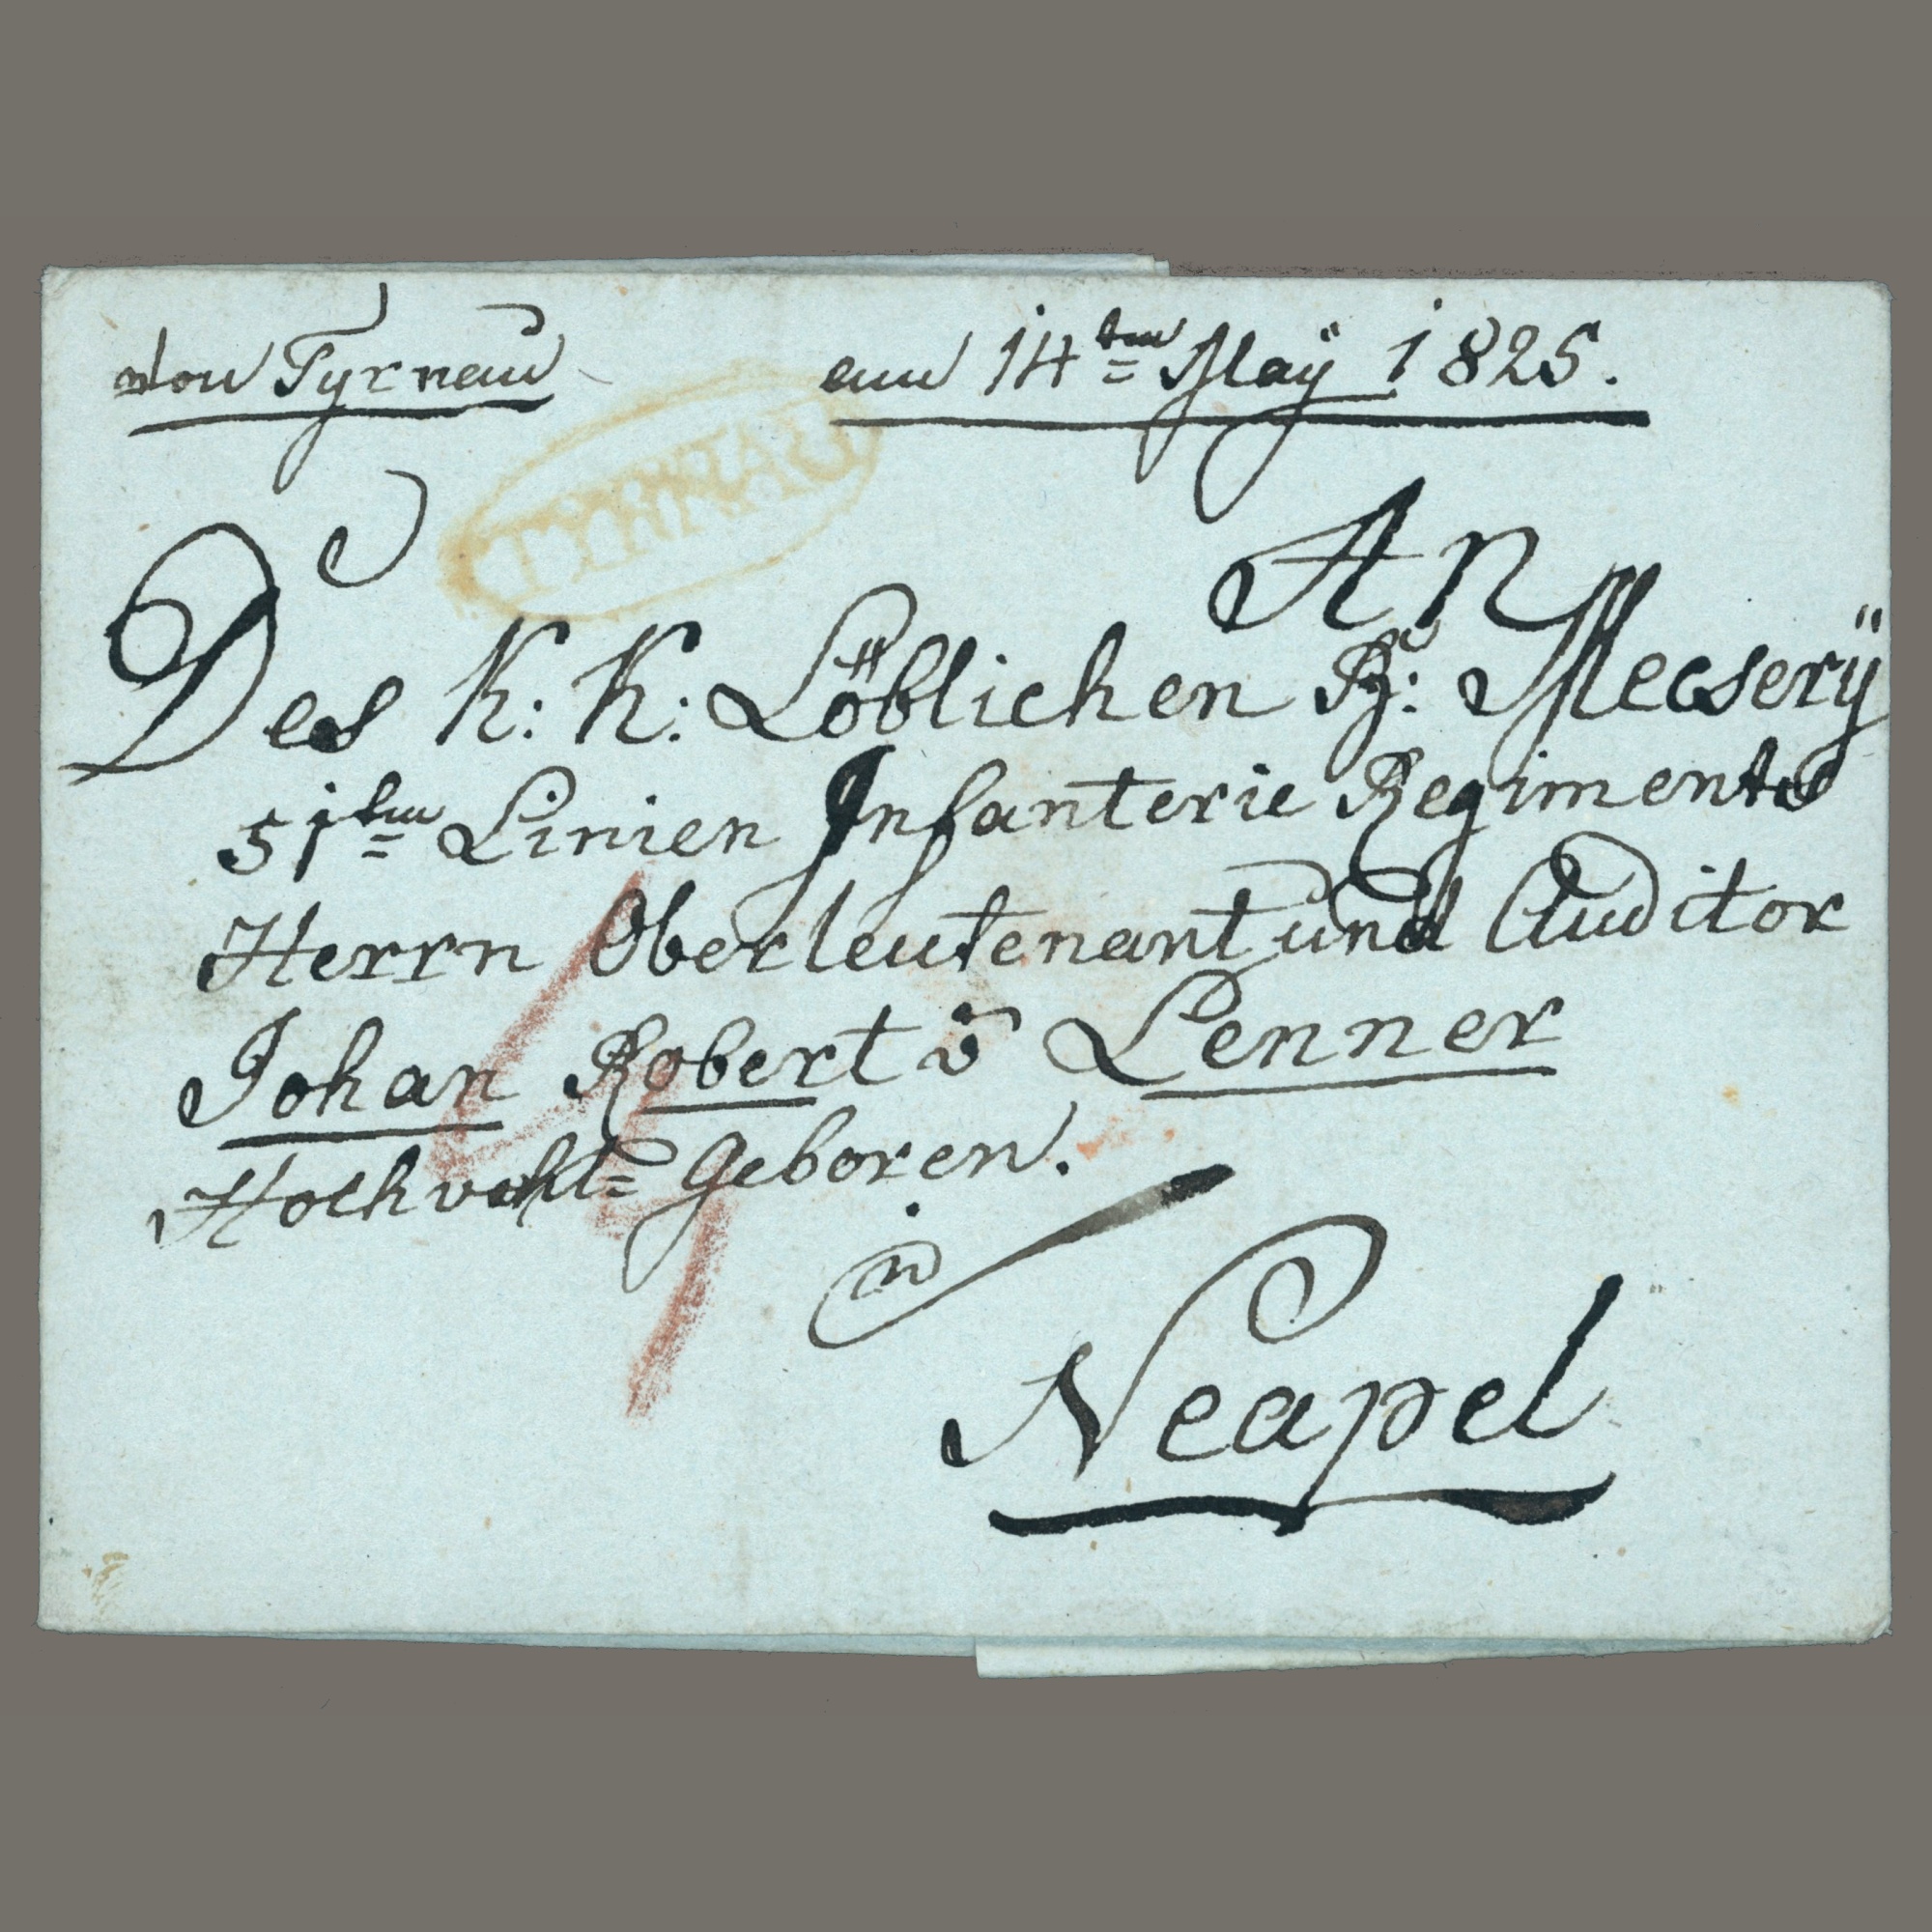 von Tyrnau
am 14ten Maÿ 1825.
TYRNAU
An
Des K: K: Löblichen B: Mecserÿ
51ten Linien Infanterie Regiments
Herrn Oberleutenant und Auditor
Johan Robert v Lenner
Hochwohl= Geboren.
in
Neapel